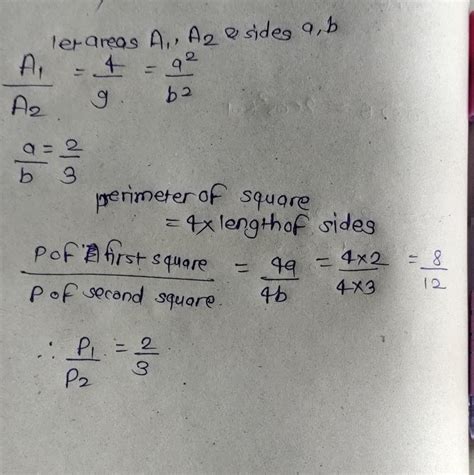 let areas A₁, A₂ & sides a, b
A₁/A₂ = 4/9 = a²/b²
a/b = 2/3
perimeter of square
= 4×length of sides
P of first square / P of second square = 4a/4b = 4×2/4×3 = 8/12
∴ P₁/P₂ = 2/3